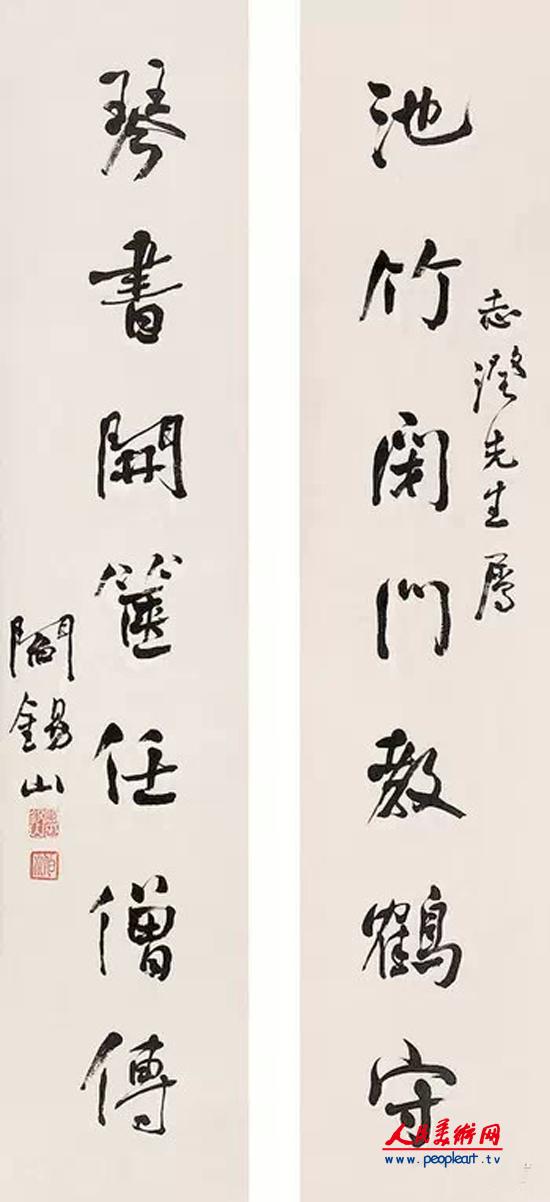 志澄先生属
池竹閉門教鶴守
琴書開篋任僧傳
閻錫山
人民美术网
www.peopleart.tv